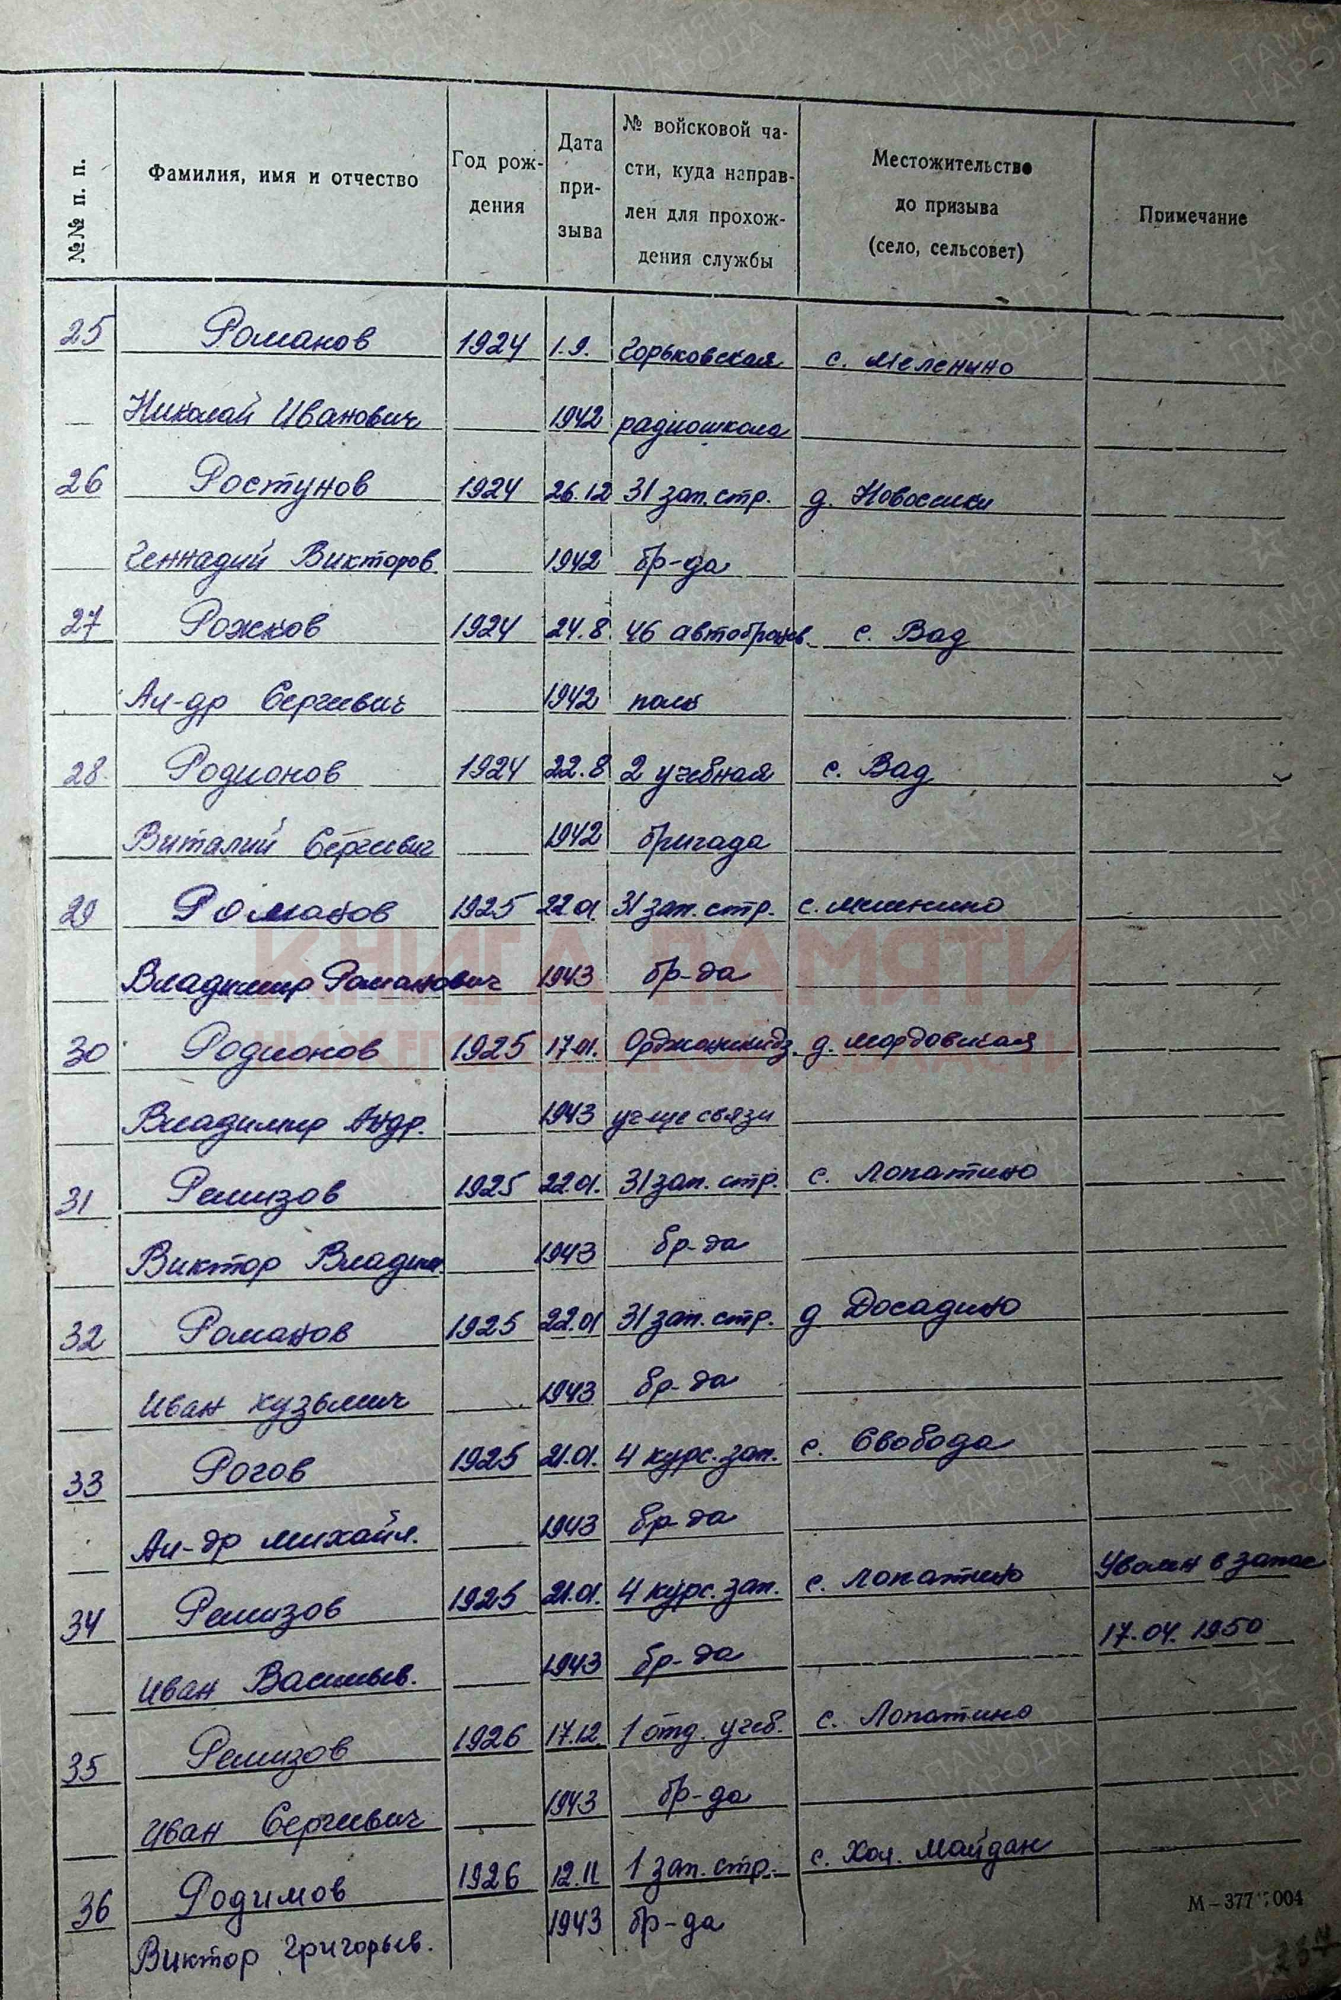 №№ п. п.
Фамилия, имя и отчество
Год рож-
дения
Дата
при-
зыва
№ войсковой ча-
сти, куда направ-
лен для прохож-
дения службы
Местожительство
до призыва
(село, сельсовет)
Примечание
25 Романов 1924 1.9. Горьковская с. Меленино
Николай Иванович 1942 радиошкола
26 Ростунов 1924 26.12 31 зап. стр. д. Новоселки
Геннадий Викторов. 1942 бр-да
27 Рожков 1924 24.8. 46 автобронев. с. Вад
Ал-др Сергеевич 1942 полк
28 Родионов 1924 22.8 2 учебная с. Вад
Виталий Сергеевич 1942 бригада
29 Романов 1925 22.01. 31 зап. стр. с.
Владимир Романович 1943 бр-да
30 Родионов 1925 17.01. Орджоникидз. д. Мордовская
Владимир Андр. 1943 уч-ще связи
31 Ремизов 1925 22.01. 31 зап. стр. с. Лопатино
Виктор Владим. 1943 бр-да
32 Романов 1925 22.01 31 зап. стр. д Досадино
Иван Кузьмич 1943 бр-да
33 Рогов 1925 21.01. 4 курс. зап. с. Свобода
Ал-др Михайл. 1943 бр-да
34 Ремизов 1925 21.01. 4 курс. зап. с. Лопатино Уволен в запас
Иван Васильев. 1943 бр-да 17.04.1950
35 Ремизов 1926 17.12. 1 отд. учеб. с. Лопатино
Иван Сергеевич 1943 бр-да
36 Родимов 1926 12.11 1 зап. стр. с. Хол. Майдан
Виктор Григорьев. 1943 бр-да
КНИГА ПАМЯТИ
НИЖЕГОРОДСКОЙ ОБЛАСТИ
ПАМЯТЬ
НАРОДА